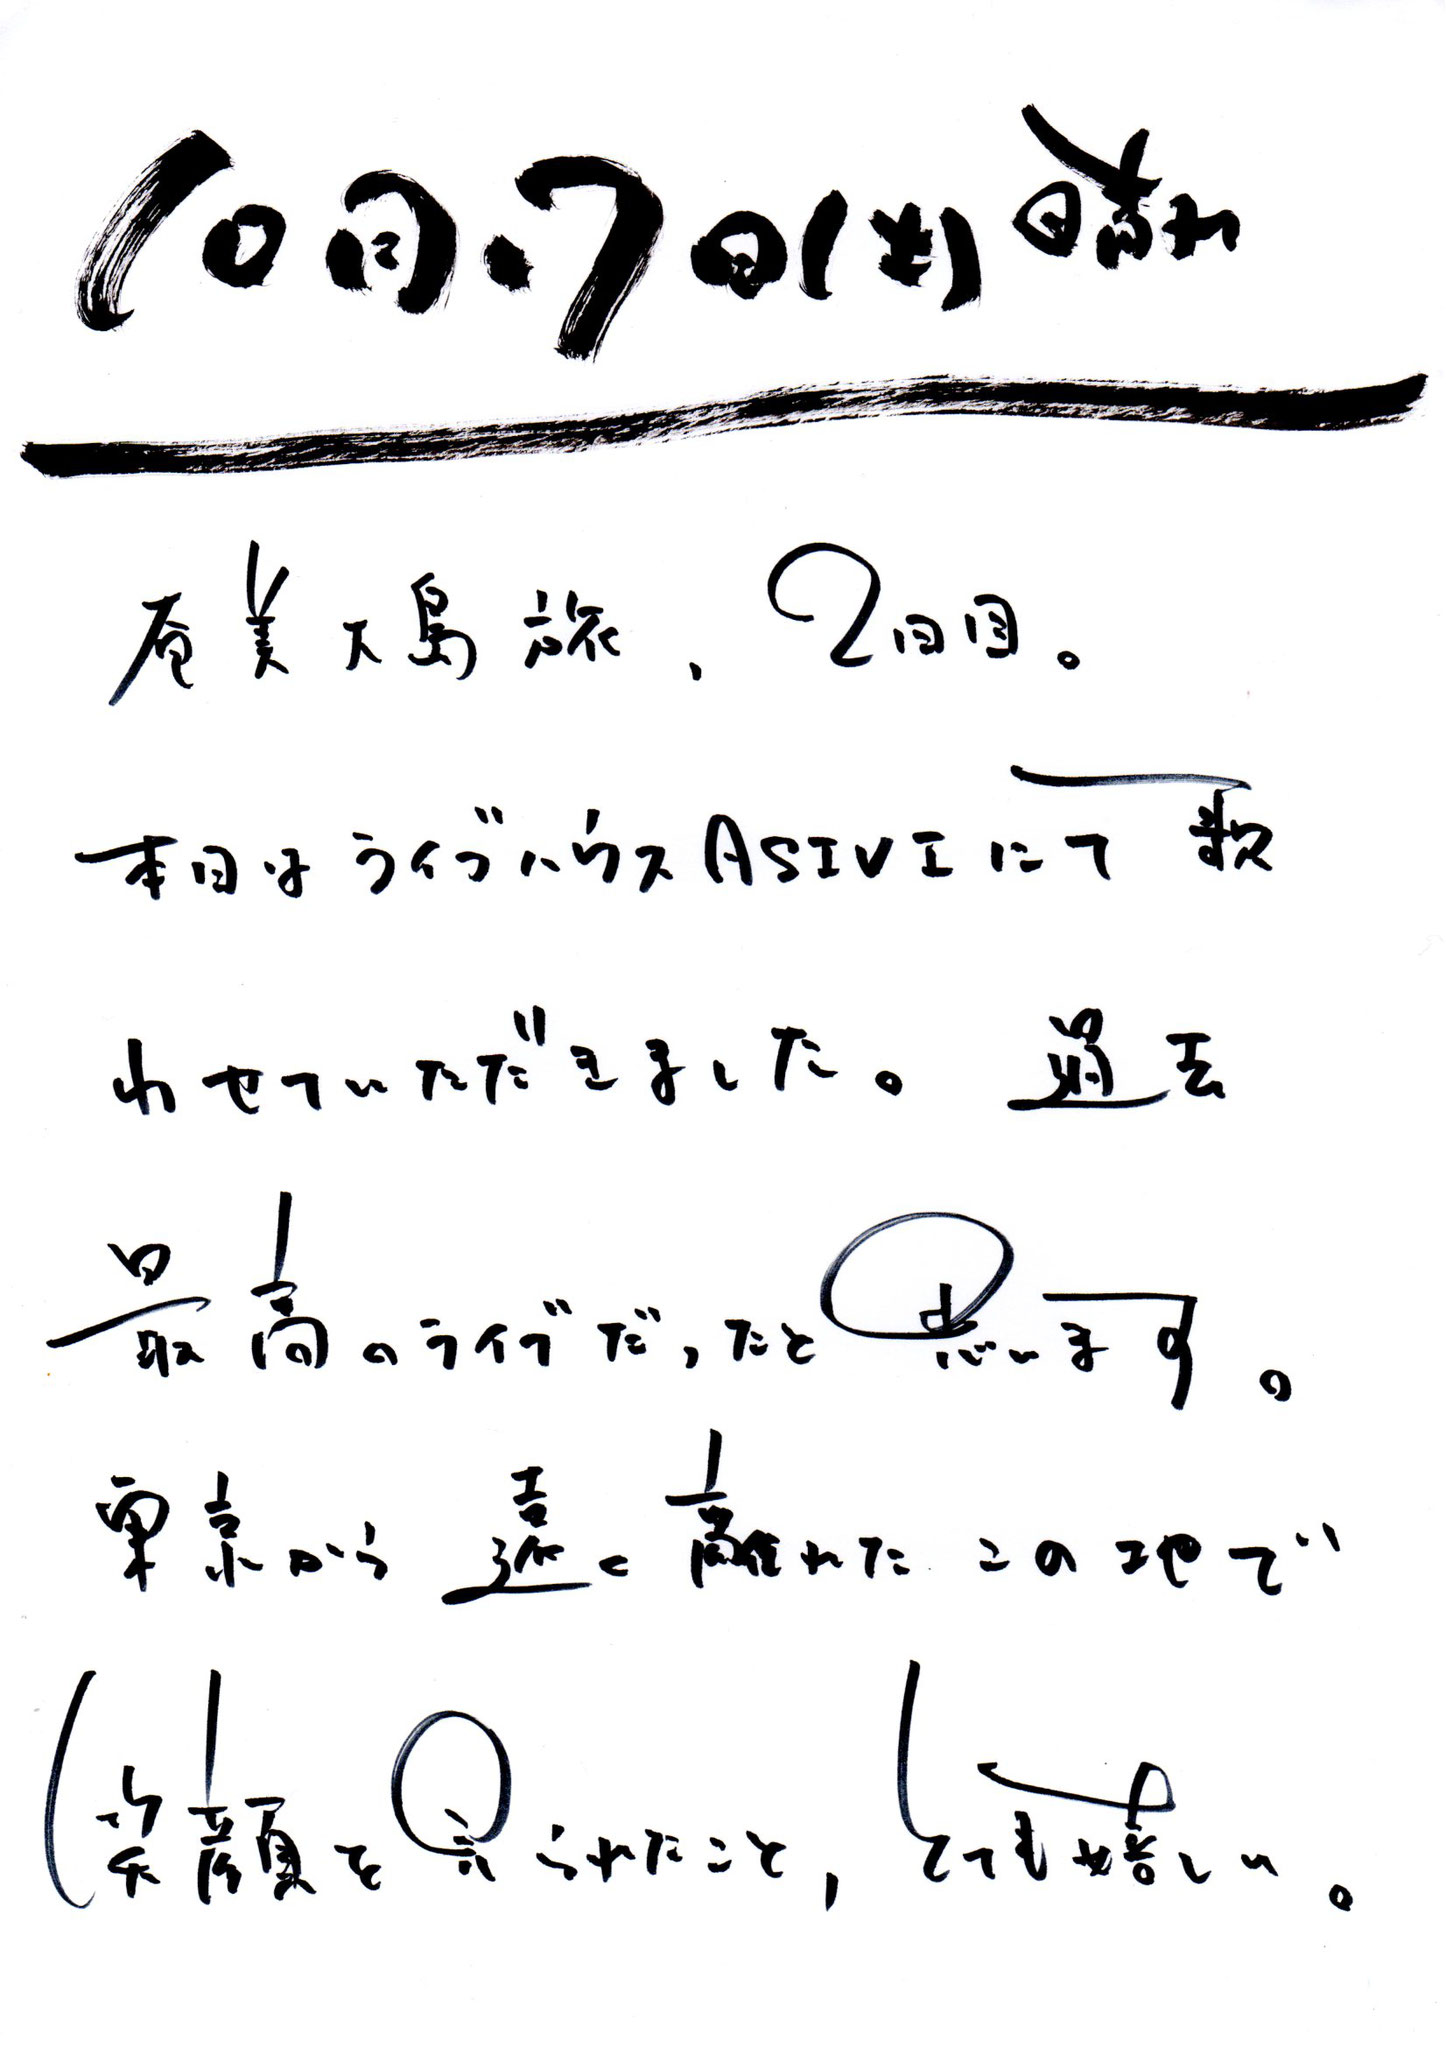 10月.7日(水) 晴れ
奄美大島旅、2日目。
本日はライブハウスASIVIにて歌
わせていただきました。過去
最高のライブだったと思います。
東京から遠く離れたこの地で
笑顔を見られたこと、とても嬉しい。